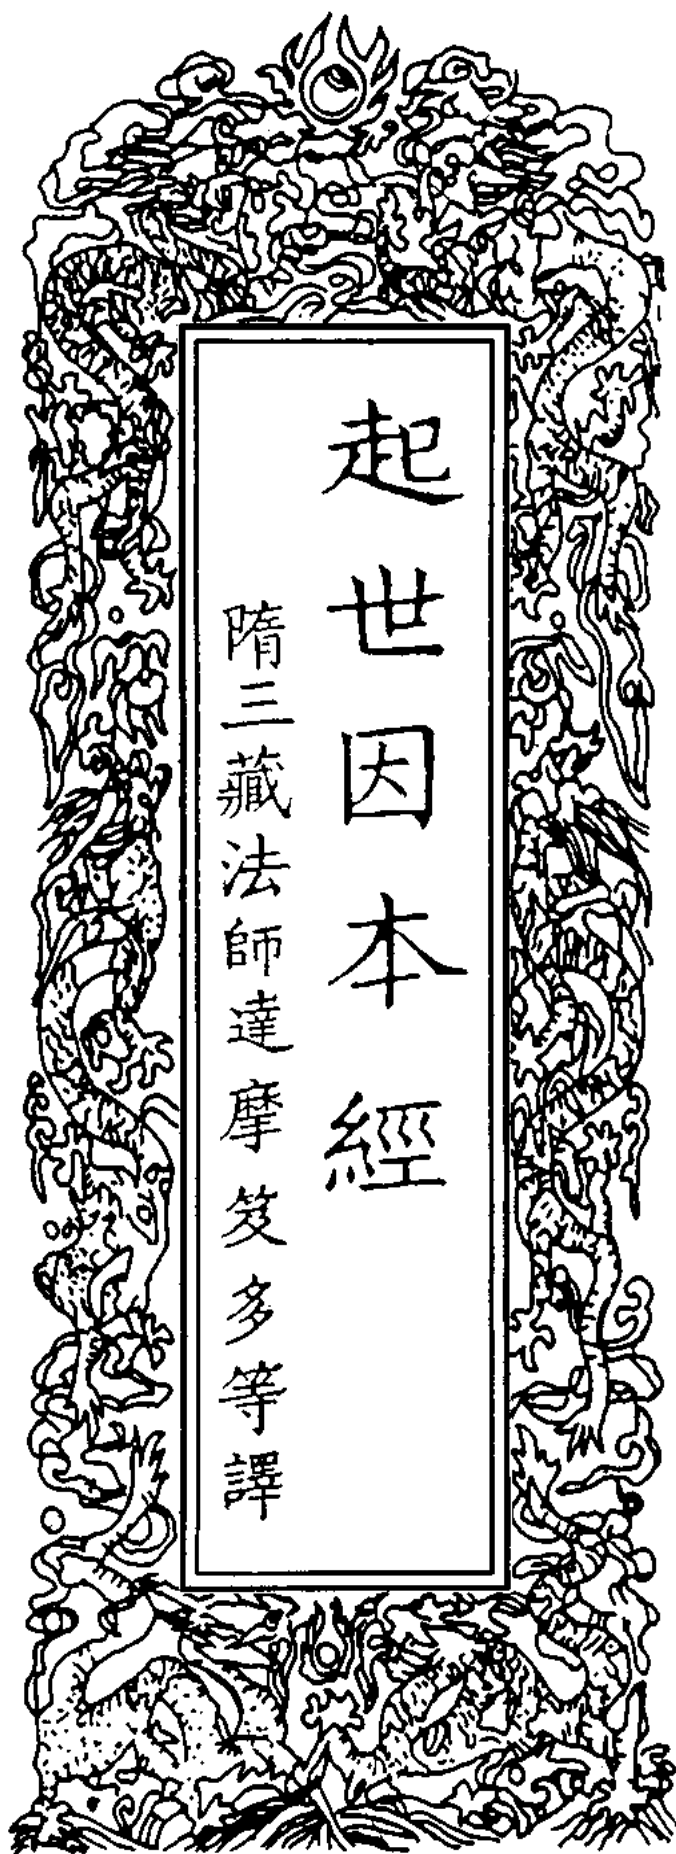 起世因本經
隋三藏法師達摩笈多等譯